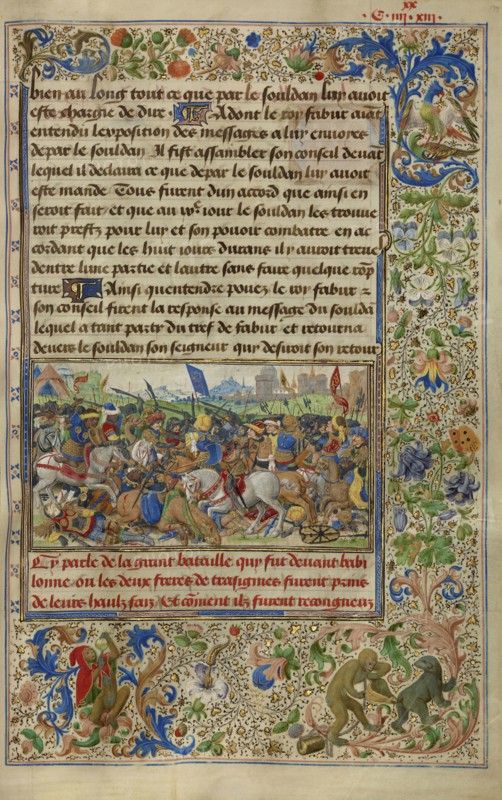 xx
C · iiii · xiii ·
bien au long tout ce que par le souldan luy auoit
este chargie de dire. Et dont le roy fabur aiāt
entendu lexposition des messages a luy enuoyes
de par le souldan Il fist assembler son conseil deuāt
lequel il declaira ce que de par le souldan luy auoit
este mande Tous furent dun accord que ainsi en
seroit fait / et que au iour le souldan les trouue
roit prestz pour luy et son pouoir combatre en ac
cordant que les huit iours durans il y auroit treue
dentre lune partie et lautre sans faire quelque rōp
ture Ainsi quentendre pouez le roy fabur z
son conseil firent la response au message du souldā
lequel atant party du tref de fabur et retourna
deuers le souldan son seigneur quy desiroit son retour
Cy parle de la grant bataille quy fut deuant babi
lonne ou les deux freres de trasignies furent prins
de leurs haulz fais / Et cōment ilz furent recongneuz